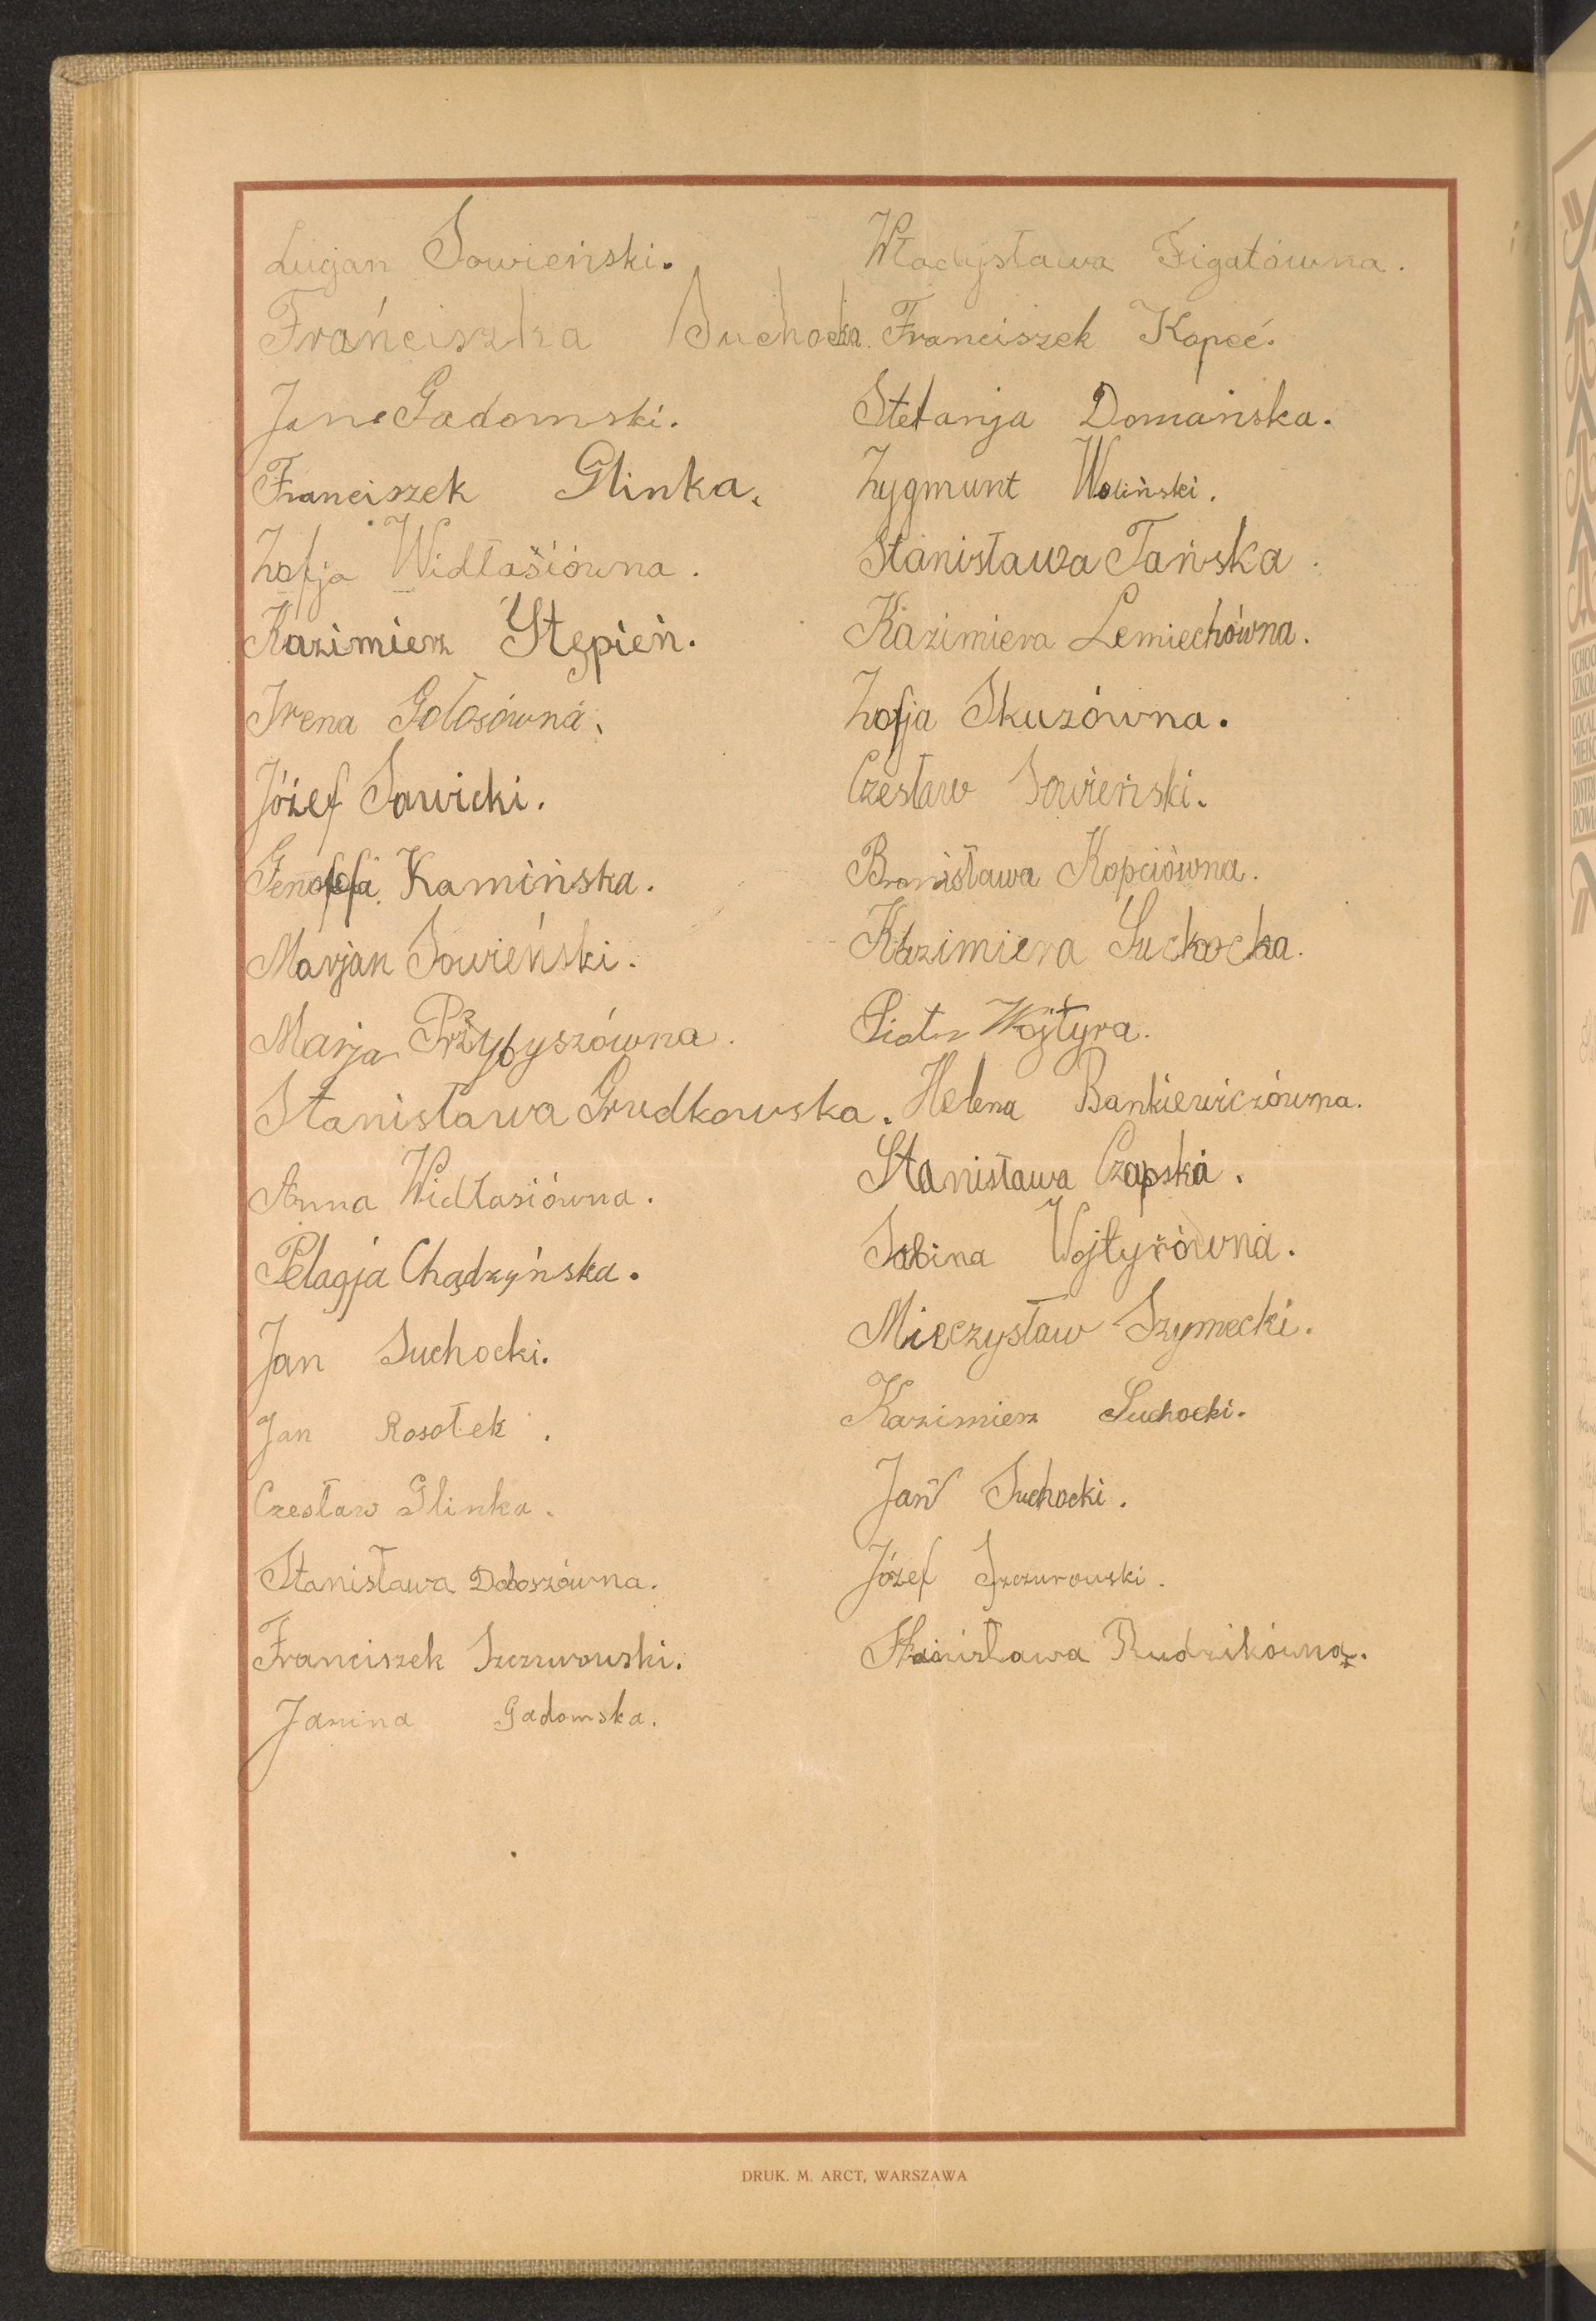 Lucjan Sowieński.
Frańciszka Suchocka.
Jan Gadomski.
Franciszek Glinka.
Zofja Widłasiówna.
Kazimierz Stępień.
Irena Gołosówna.
Józef Sawicki.
Genofefa Kamińska.
Marjan Sowieński.
Marja Przybyszówna.
Stanisława Grudkowska.
Anna Widłasiówna.
Pelagja Chądzyńska.
Jan Suchocki.
Jan Rosołek.
Czesław Glinka.
Stanisława Doboszówna.
Franciszek Szczurowski.
Janina Gadomska.
Władysława Figatówna.
Franciszek Kopeć.
Stefanja Domańska.
Zygmunt Woliński.
Stanisława Tańska.
Kazimiera Lemiechówna.
Zofja Skuzówna.
Czesław Sowieński.
Bronisława Kopciówna.
Kazimiera Suchocka.
Piotr Wojtyra.
Helena Bankiewiczówna.
Stanisława Czapska.
Sabina Wojtyrówna.
Mieczysław Szymecki.
Kazimierz Suchocki.
Jan Suchocki.
Józef Szczurowski.
Stanisława Rudzikówna.
DRUK. M. ARCT, WARSZAWA